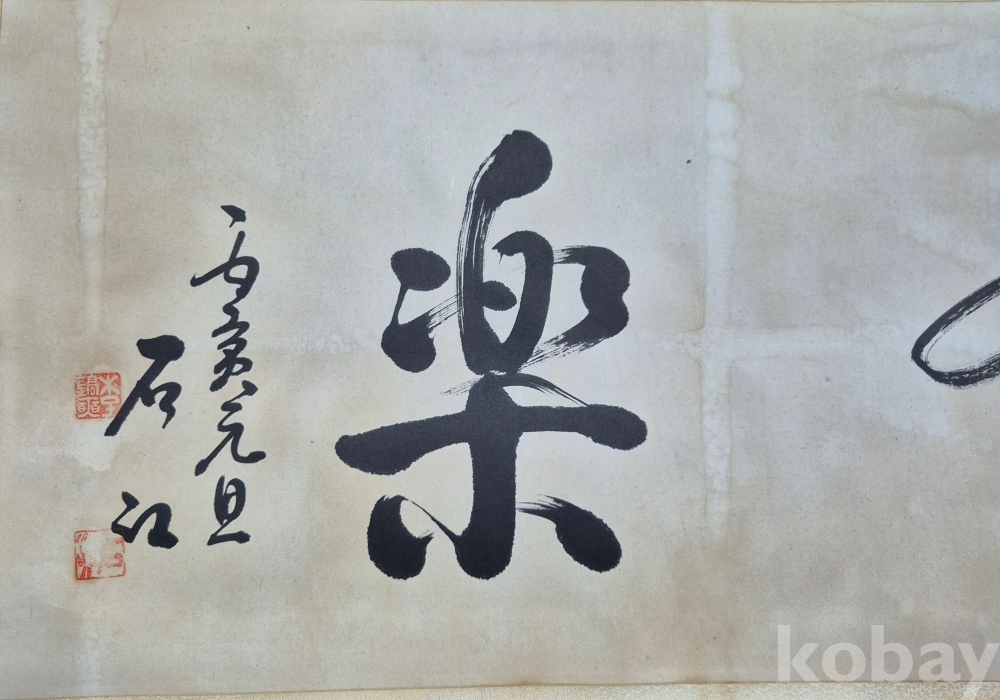 楽
丙寅元旦
石江
kobay